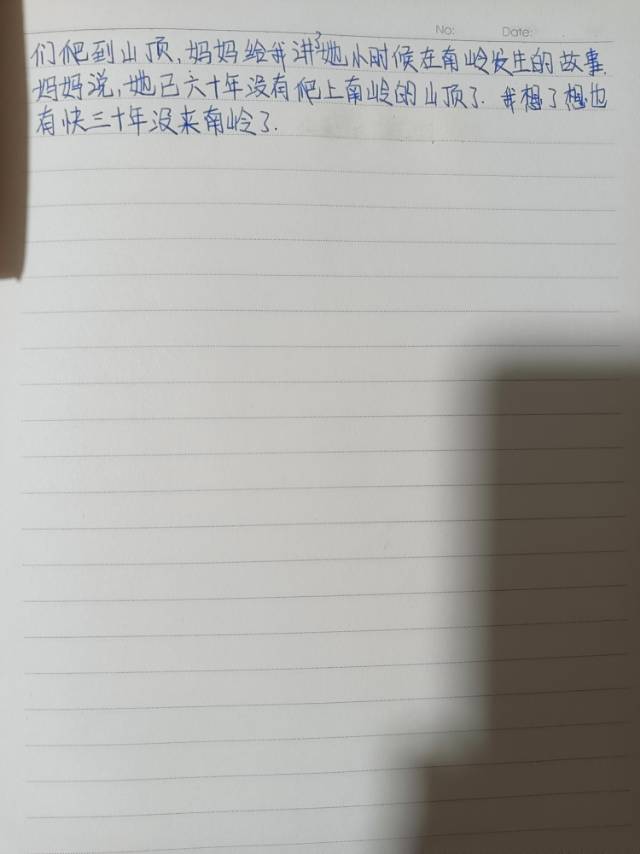 No: Date:
们爬到山顶,妈妈给我讲了她小时候在南岭发生的故事.
妈妈说,她已六十年没有爬上南岭的山顶了.我想了想也
有快三十年没来南岭了.